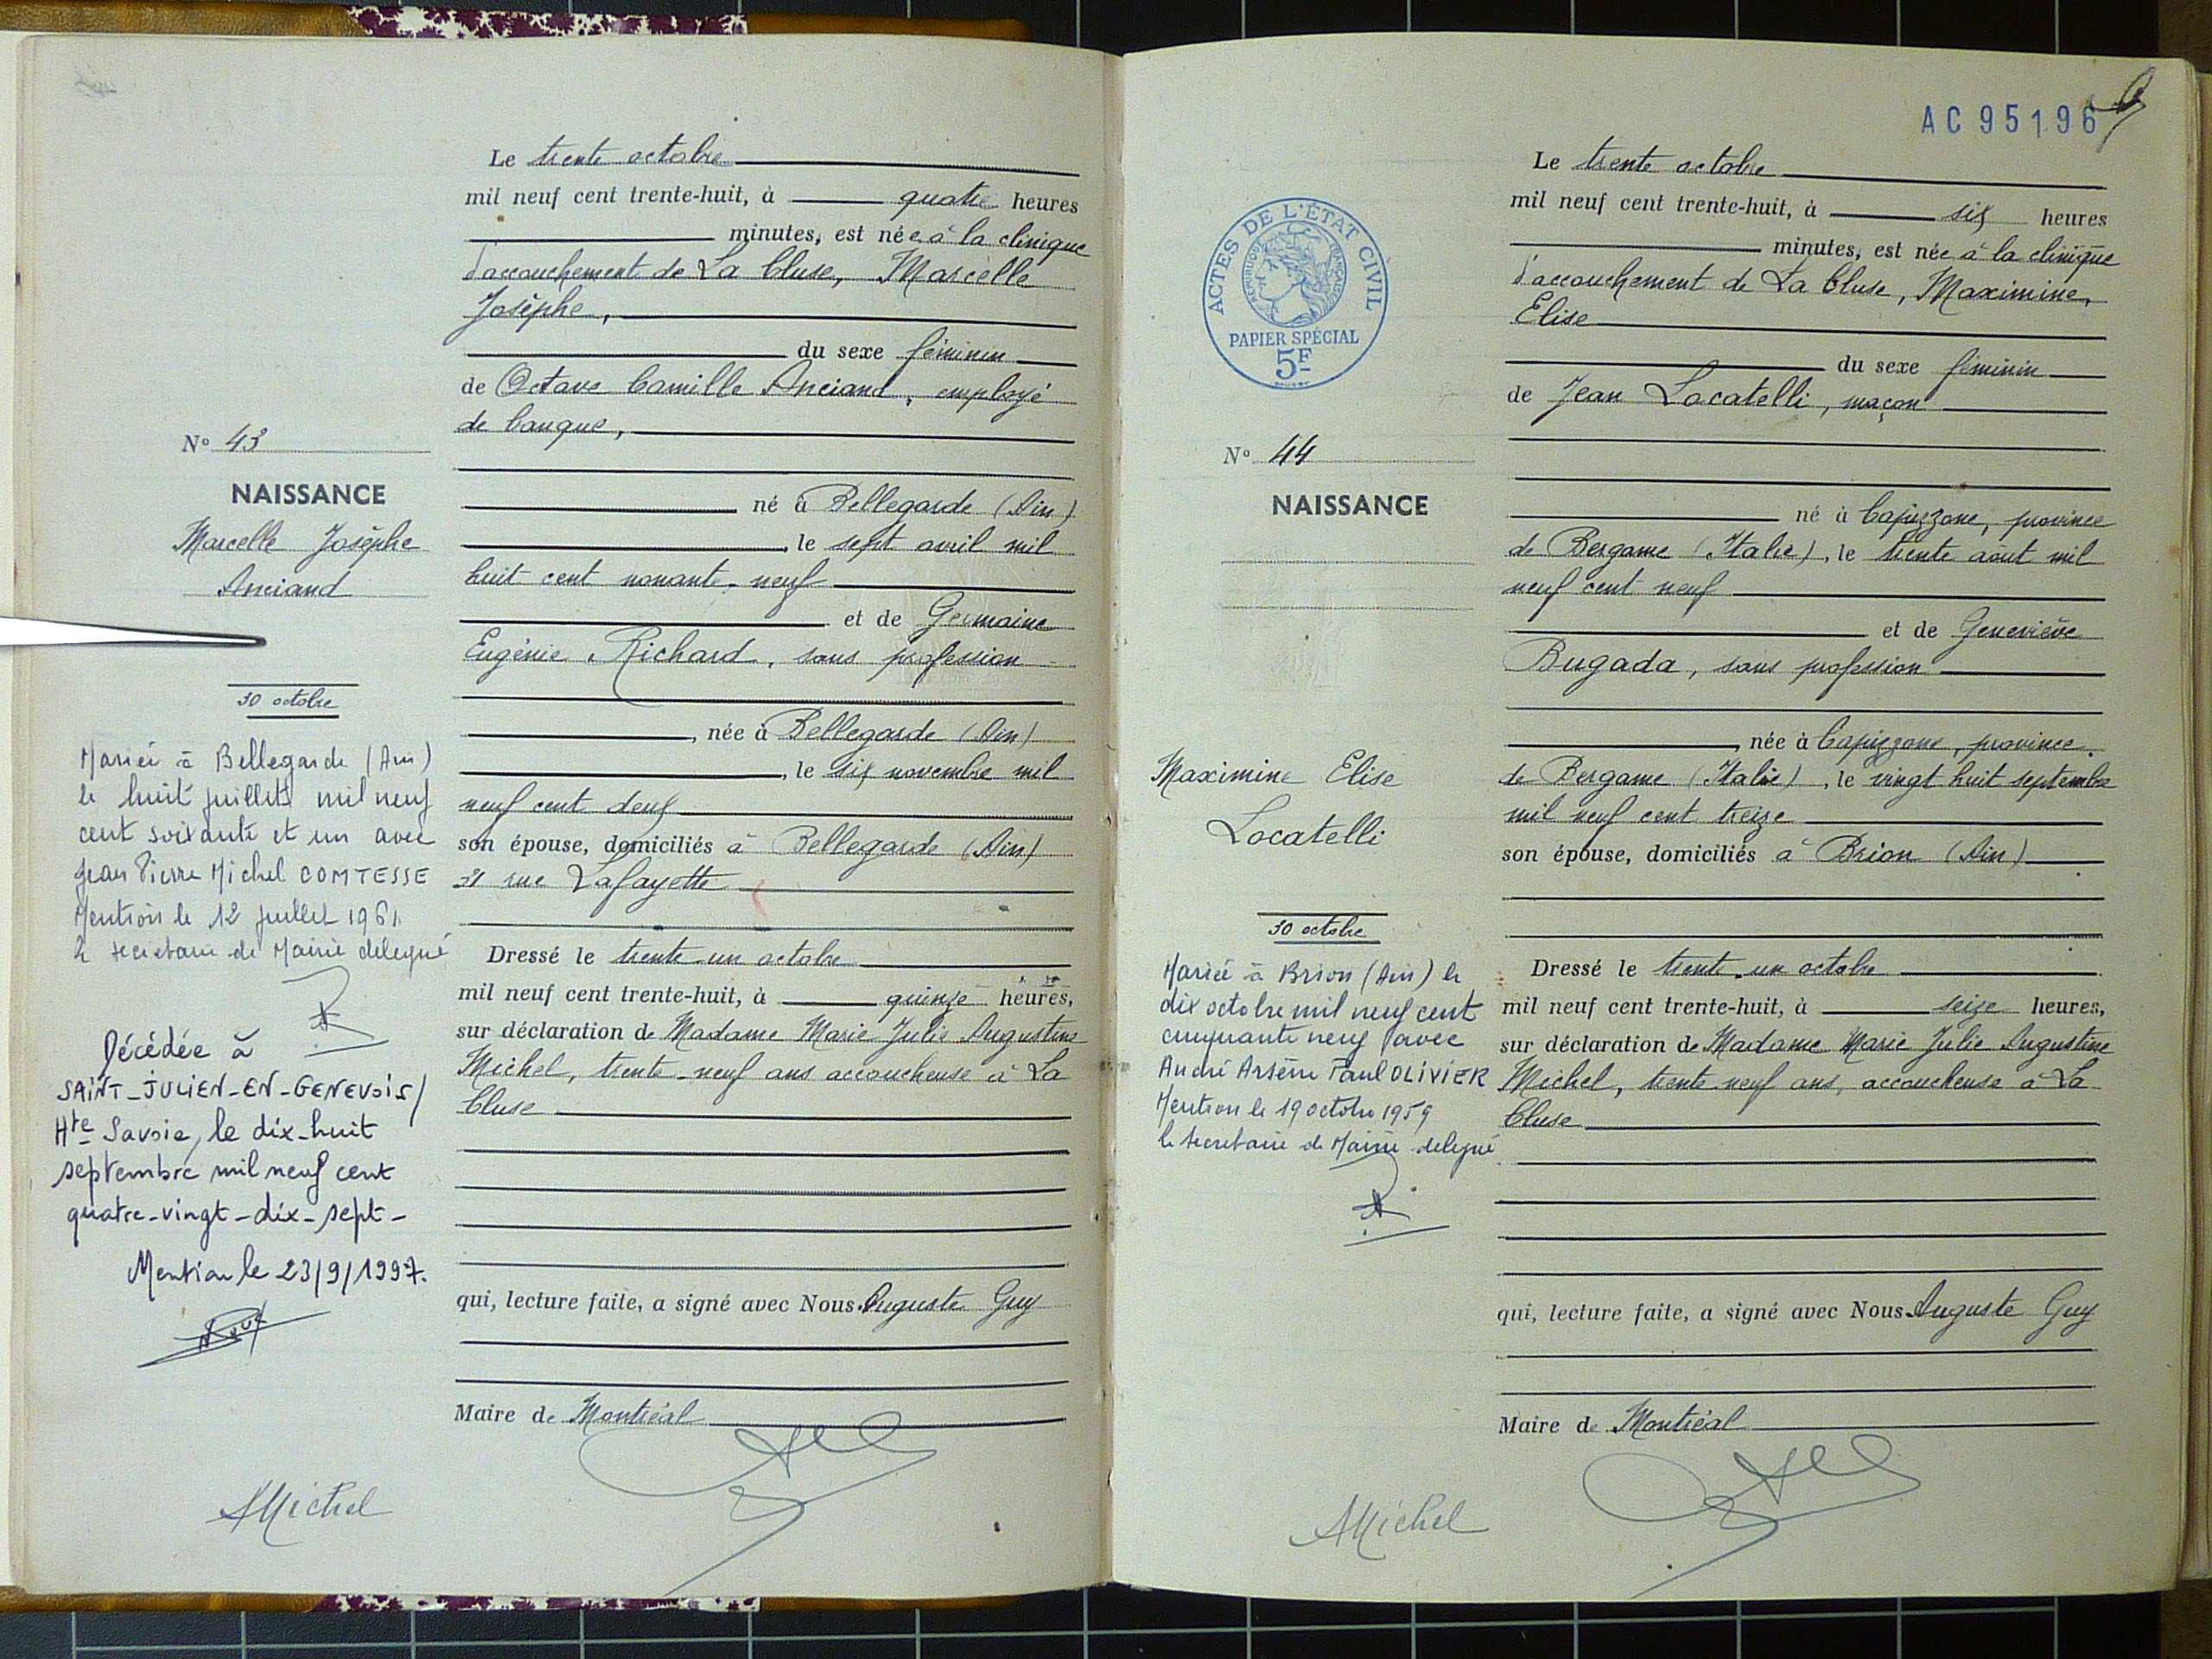 Le trente octobre
mil neuf cent trente-huit, à quatre heures
minutes, est née à la clinique
d'accouchement de La Cluse, Marcelle
Josèphe,
du sexe féminin
de Octave Camille Anciand, employé
de banque,
né à Bellegarde (Ain)
, le sept avril mil
huit cent nonante-neuf
et de Germaine
Eugénie Richard, sans profession
, née à Bellegarde (Ain)
, le six novembre mil
neuf cent deux
son épouse, domiciliés à Bellegarde (Ain)
rue Lafayette
Dressé le trente-un octobre
mil neuf cent trente-huit, à quinze heures,
sur déclaration de Madame Marie Julie Augustine
Michel, trente-neuf ans accoucheuse à La
Cluse
qui, lecture faite, a signé avec Nous Auguste Guy
Maire de Montréal
N° 43
NAISSANCE
Marcelle Josèphe
Anciand
30 octobre
Mariée à Bellegarde (Ain)
le huit juillet mil neuf
cent soixante et un avec
Jean Pierre Michel COMTESSE
Mention le 12 juillet 1961
Le secretaire de Mairie délégué
Décédée à
SAINT-JULIEN-EN-GENEVOIS/
Hte Savoie, le dix-huit
septembre mil neuf cent
quatre-vingt-dix-sept-
Mention le 23/9/1997.
AMichel
AC 95196
Le trente octobre
mil neuf cent trente-huit, à six heures
minutes, est née à la clinique
d'accouchement de La Cluse, Maximine,
Elise
du sexe féminin
de Jean Locatelli, maçon
né à Capizzone, province
de Bergame (Italie), le trente aout mil
neuf cent neuf
et de Geneviève
Bugada, sans profession
, née à Capizzone, province
de Bergame (Italie), le vingt huit septembre
mil neuf cent treize
son épouse, domiciliés à Brion (Ain)
Dressé le trente-un octobre
mil neuf cent trente-huit, à seize heures,
sur déclaration de Madame Marie Julie Augustine
Michel, trente-neuf ans, accoucheuse à La
Cluse
qui, lecture faite, a signé avec Nous Auguste Guy
Maire de Montréal
ACTES DE L'ÉTAT CIVIL
RÉPUBLIQUE FRANÇAISE
PAPIER SPÉCIAL
5F
N° 44
NAISSANCE
Maximine Elise
Locatelli
30 octobre
Mariée à Brion (Ain) le
dix octobre mil neuf cent
cinquante neuf avec
André Arsène Paul OLIVIER
Mention le 19 octobre 1959
le secretaire de Mairie délégué
AMichel